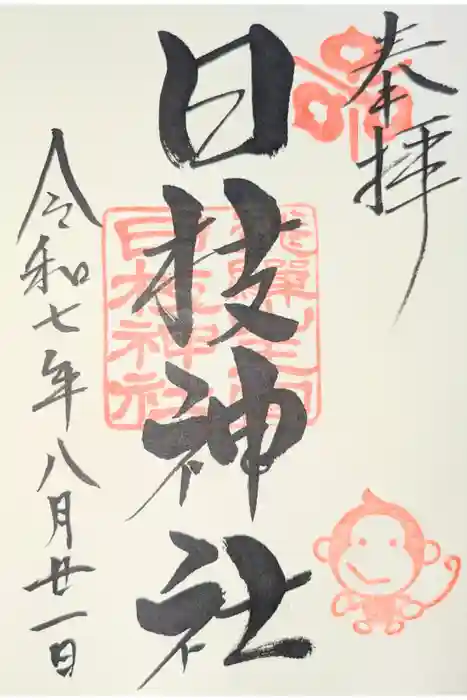 奉拝
日枝神社
飛騨生雲
日枝神社
令和七年八月廿一日